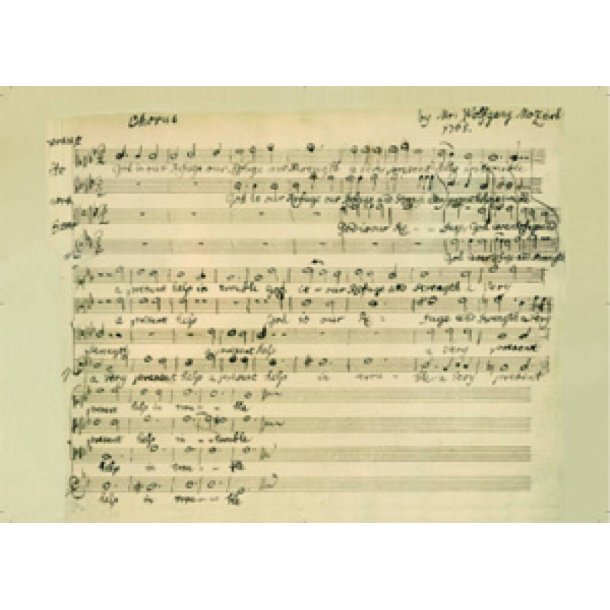 Chorus
by Mr. Wolfgang Mozart
1765.
God is our Refuge our Refuge and Strength a very present help in trouble
God is our Refuge our Refuge and Strength
God is our Re - - fuge God
God
a present help in trouble God is our Refuge and strength a Very
a present help God is our Re - fuge and strength a Very
strength present help a very present
a very present help a present help in trou - ble a Very present
present help in trou - - ble
present help in - - trouble
help in trou - - ble
help in trou - - ble